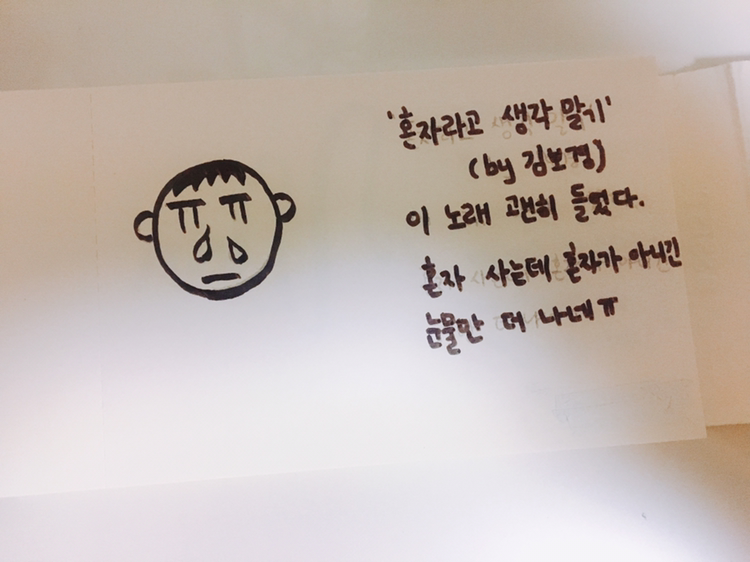 '혼자라고 생각 말기'
(by 김보경)
이 노래 괜히 들었다.
혼자 사는데 혼자가 아니긴
눈물만 더 나네ㅠ